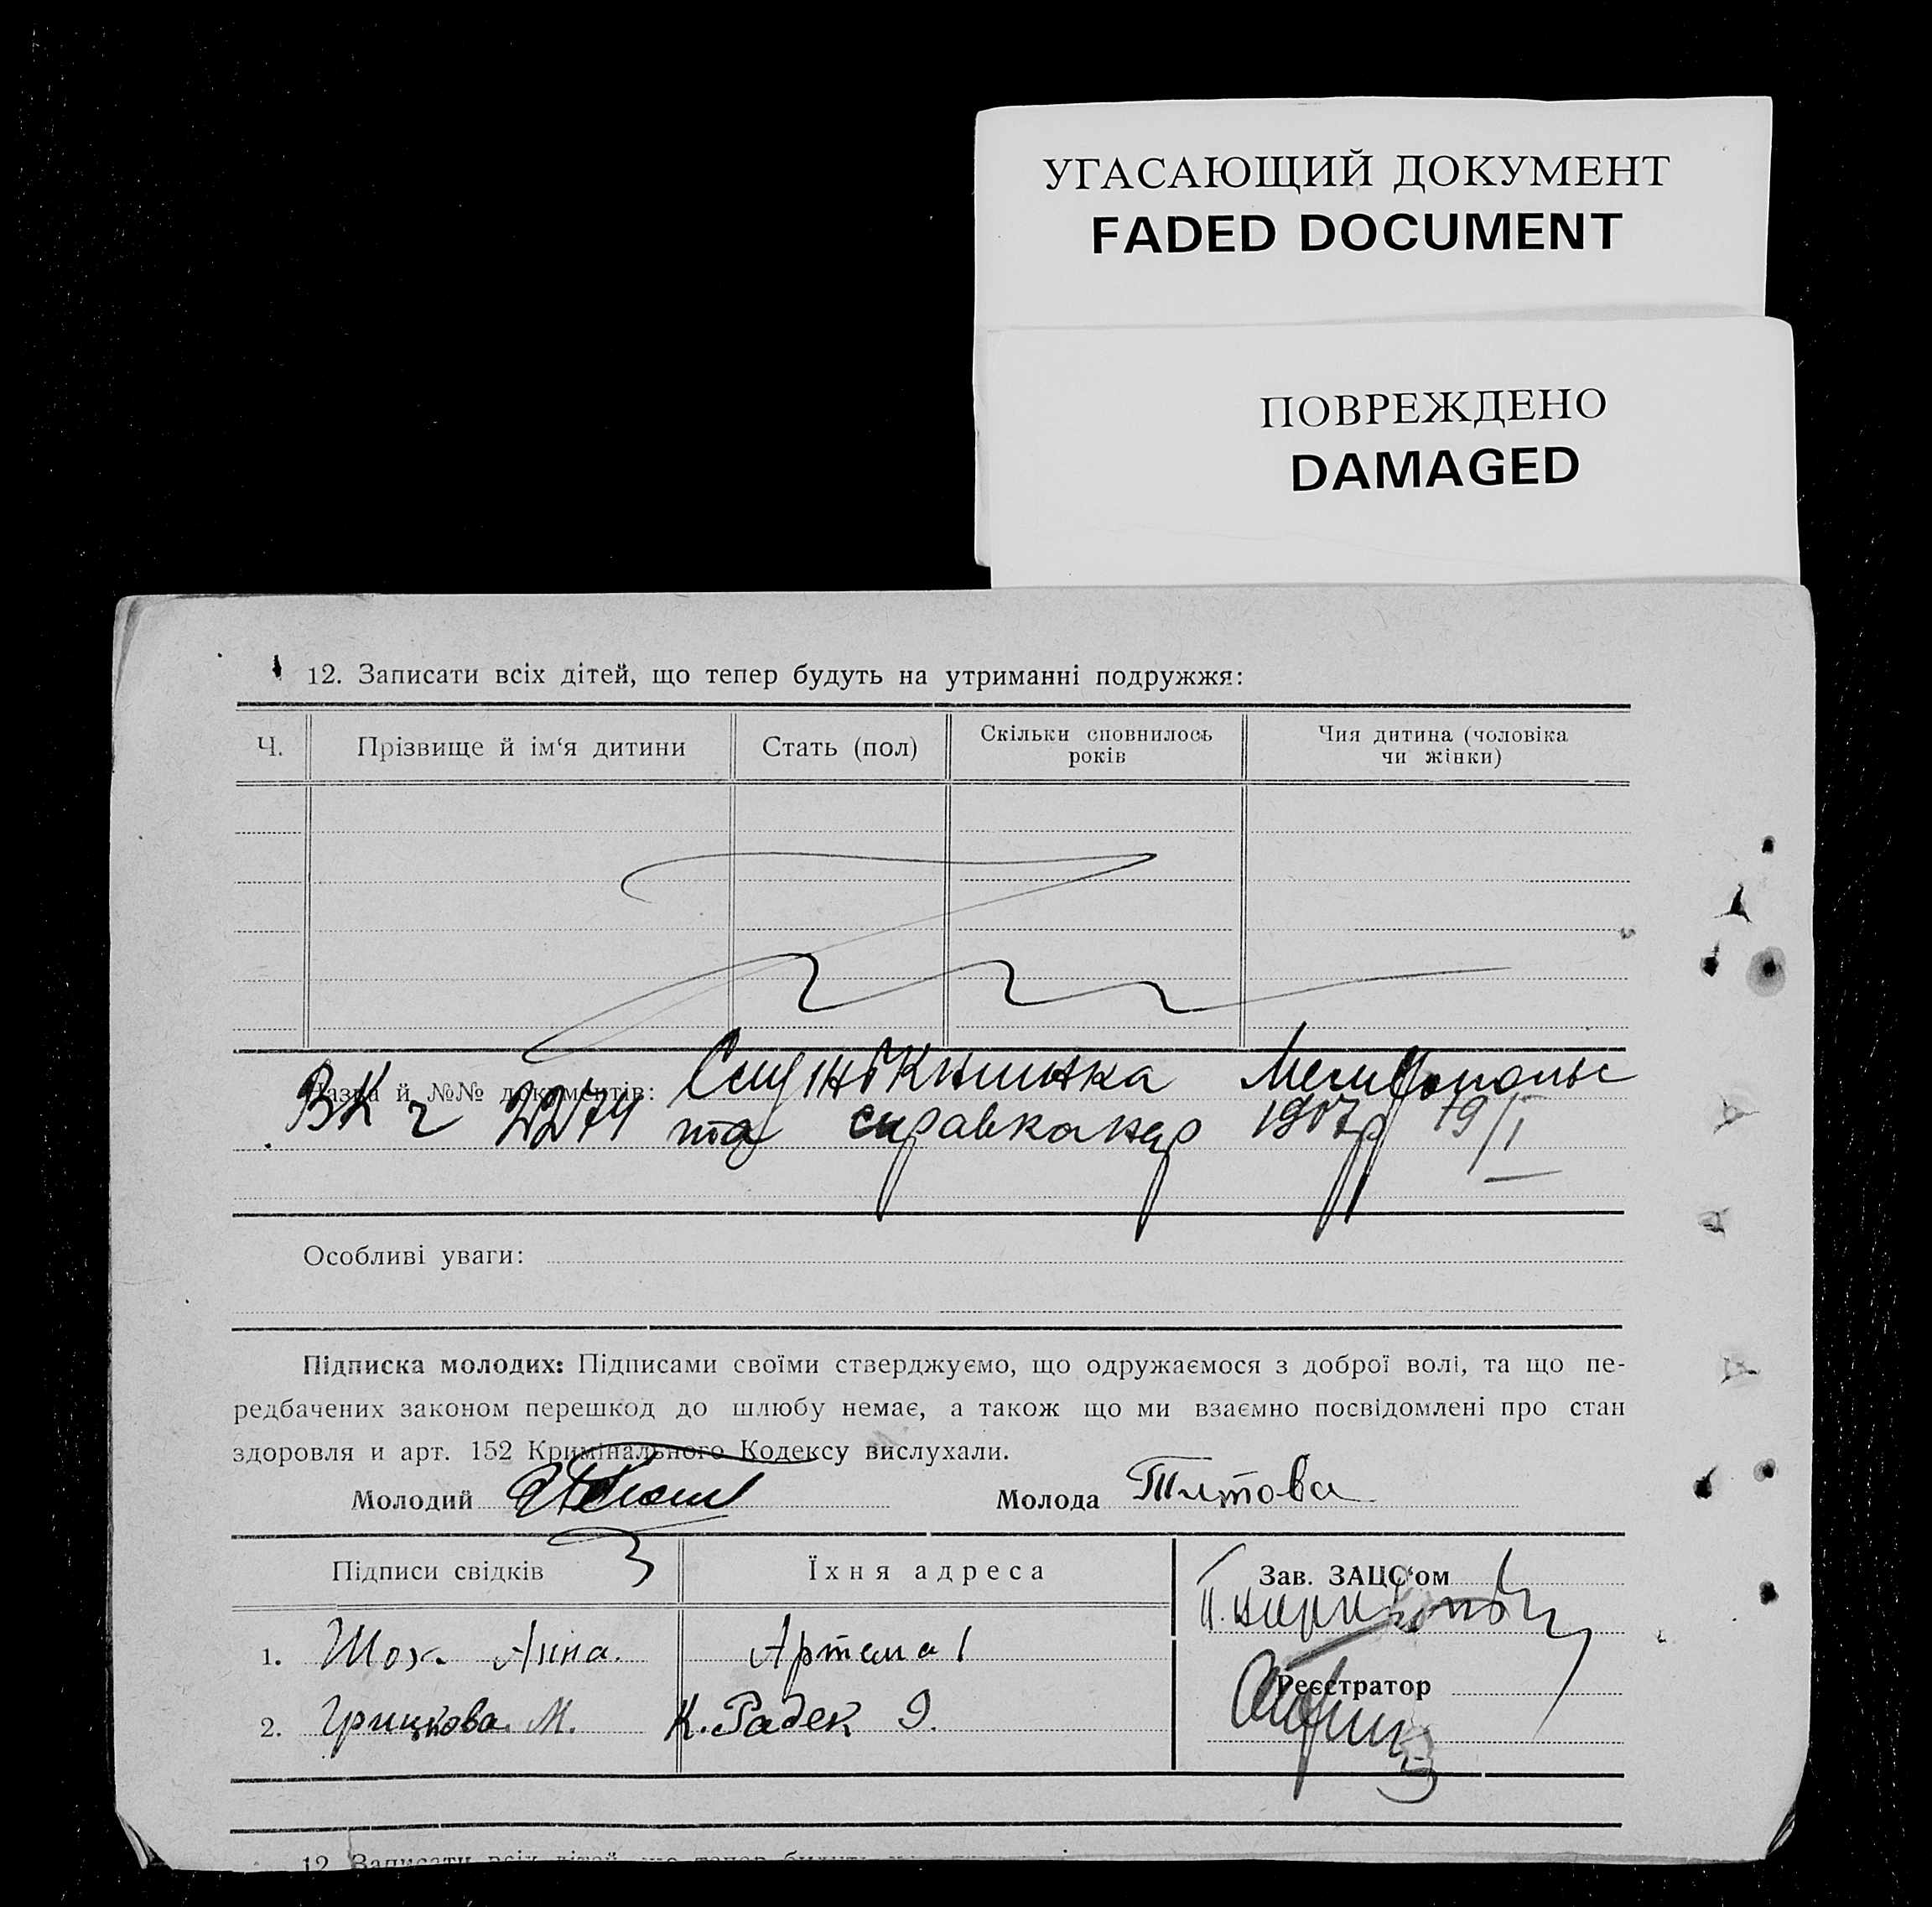 УГАСАЮЩИЙ ДОКУМЕНТ
FADED DOCUMENT
ПОВРЕЖДЕНО
DAMAGED
12. Записати всіх дітей, що тепер будуть на утриманні подружжя:
Ч.
Прізвище й ім‘я дитини
Стать (пол)
Скільки сповнилось
років
Чия дитина (чоловіка
чи жінки)
Назва й №№ документів:
ВК 2274 та справка 19/I
Особливі уваги:
Підписка молодих: Підписами своїми стверджуємо, що одружаємося з доброї волі, та що пе-
редбачених законом перешкод до шлюбу немає, а також що ми взаємно посвідомлені про стан
здоровля и арт. 152 Кримінального Кодексу вислухали.
Молодий
Молода Титова
Підписи свідків
Їхня адреса
Зав. ЗАЦС‘ом
1. Шох Анна. Артема 1
Реєстратор
2. Грицкова М. К. Радек 9.
12. Записати всіх дітей, що тепер будуть